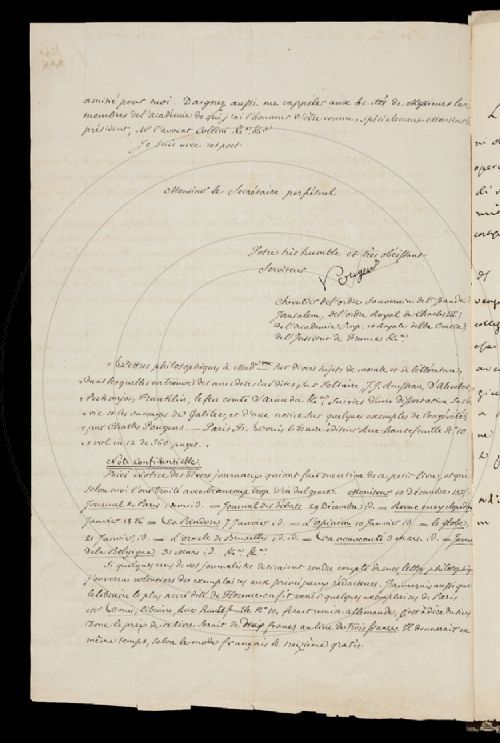 amitié pour moi. Daignez aussi me rappeler aux bontés de Messieurs les
membres de l'académie de qui j'ai l'honneur d'être connu, spécialement Monsieur le
président, Mr l'avocat Collini &ca &ca
Je suis avec respect
Monsieur le Secrétaire perpétuel
Votre très humble et très obéissant
Serviteur
Pougens
Chevalier de l'ordre Souverain de St Jean de
Jérusalem, de l'ordre Royal de Charles III,
de l'académie Imp. et Royale della Crusca,
de l'Institut de France &ca
« Lettres philosophiques à Made *** sur divers sujets de morale et de littérature,
dans lesquelles on trouve des anecdotes inédites sur Voltaire, J. J. Rousseau, D'Alembert,
Pechméja, Franklin, le feu comte d'Aranda &ca, suivies d'une dissertation sur la
vie et les ouvrages de Galilée, et d'une notice sur quelques exemples de longévité,
par Charles Pougens — Paris Fs Louis libraire éditeur Rue hautefeuille No 10
1 vol in 12 de 360 pages. —
Note Confidentielle
Voici Notice des divers journaux qui ont fait mention de ce petit livre, et qui
selon moi l'ont traité avec beaucoup trop d'indulgence. Moniteur 10 Décembre 1825
Journal de Paris idem id. — Journal des débats 29 Décembre id — Revue encyclopédique
Janvier 1826 — La Pandore 7 Janvier id — L'opinion 10 Janvier id — le globe,
21 Janvier id — L'oracle de Bruxelles id. id. — La nouveauté 3 Mars id — Journal
de la Belgique 31 Mars id &ca &ca
Si quelques uns de vos journalistes désiraient rendre compte de mes lettres philosophiques
j'enverrai volontiers des exemplaires aux principaux rédacteurs. J'aimerais aussi que
le libraire le plus accrédité de Florence en fit venir quelques exemplaires de Paris
Mr Louis, libraire, Rue hautefeuille No 10, ferait remise allemande, c'est à dire le tiers
Donc le prix de ce livre serait de Deux francs au lieu de Trois francs. Il donnerait en
même temps, selon le mode français le treizième gratis.